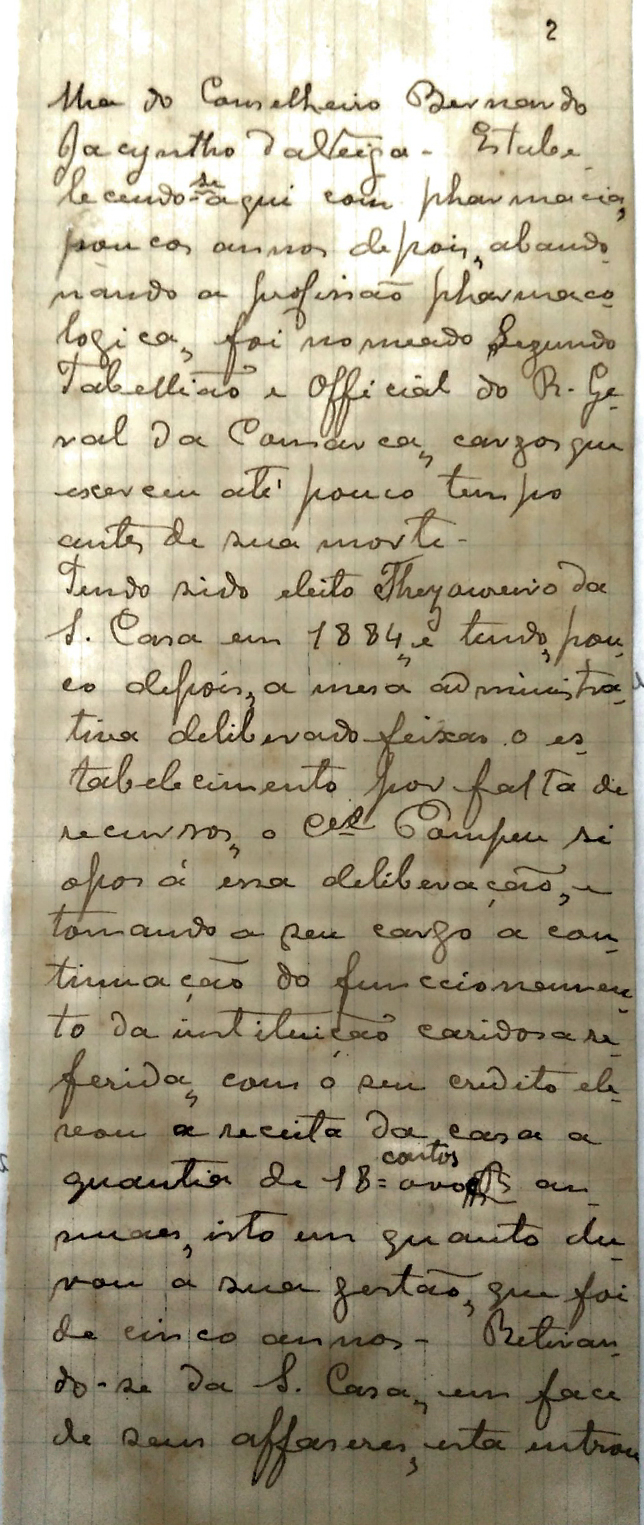 2
lha do Conselheiro Bernardo
Jacyntho da Veiga - Estabe_
lecendo-se aqui com pharmacia,
poucos annos depois, abando_
nando a profissão pharmaco_
logica, foi nomeado Segundo
Tabellião e Official do R. Ge_
ral da Comarca, cargos que
exerceu até pouco tempo
antes de sua morte -
Tendo sido eleito Thezoureiro da
S. Casa em 1884, e tendo, pou_
co depois, a mesa administra_
tiva deliberado feixar o es_
tabelecimento por falta de
recursos, o Cel Pompeu si
opos á essa deliberação, e
tomando a seu cargo a con_
tinuação do funccionamen_
to da instituição caridosa re_
ferida, com o seu credito ele_
vou a receita da casa a
quantia de 18= contos an_
nuaes, isto em quanto du_
rou a sua gestão, que foi
de cinco annos - Retiran_
do-se da S. Casa, em face
de seus affaseres, esta entrou